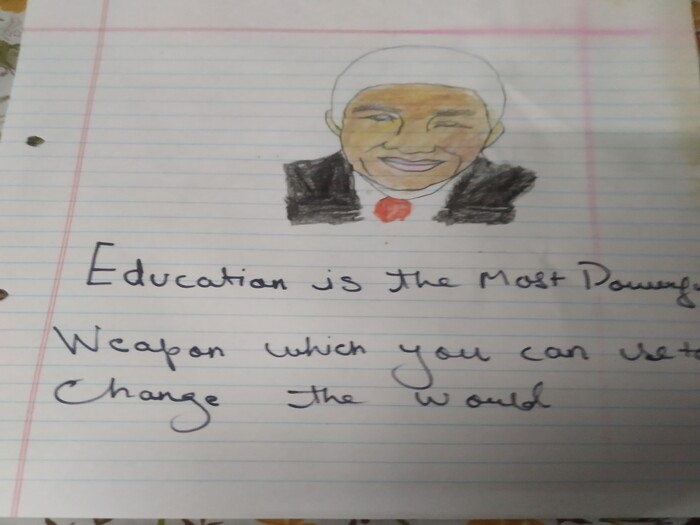 Education is the Most Powerf
Weapon which you can use to
Change the would